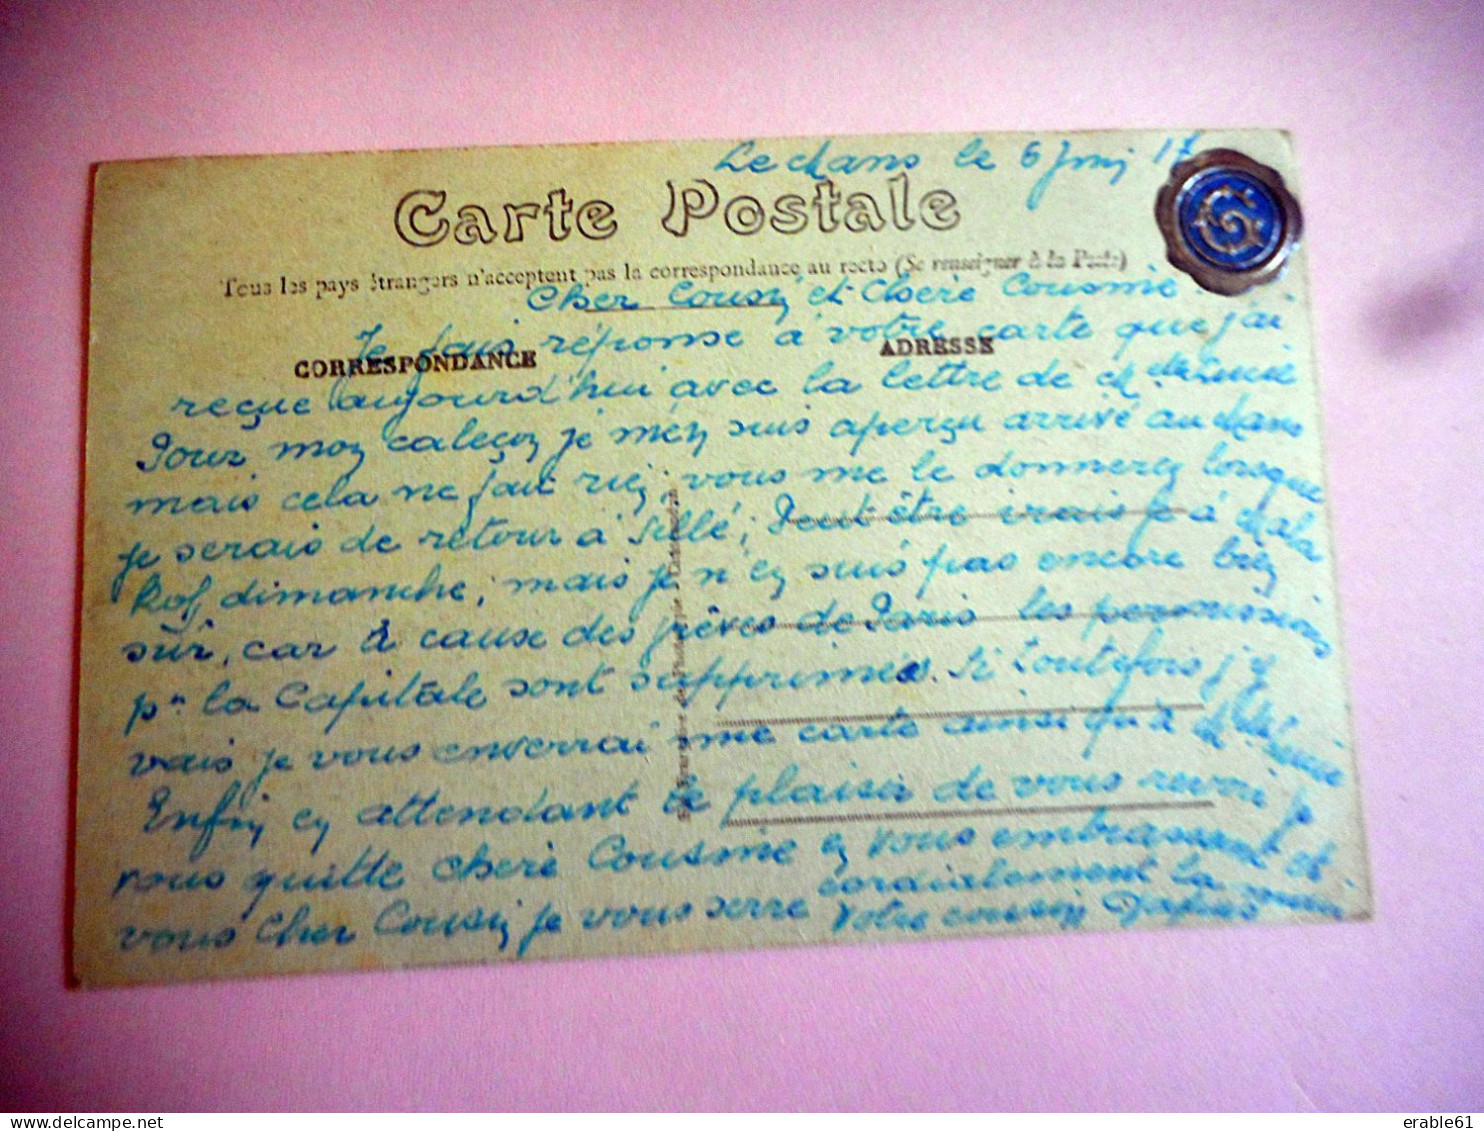 Le Mans le 6 Juin 17
Carte Postale
Tous les pays étrangers n'acceptent pas la correspondance au recto (Se renseigner à la Poste)
Cher Cousin et chère Cousine
Je fais réponse à votre carte que j'ai
CORRESPONDANCE
ADRESSE
reçue aujourd'hui avec la lettre de
Pour mon caleçon je m'en suis aperçu arrivé au Mans
mais cela ne fait rien, vous me le donnerez lorsque
je serais de retour à Sillé; Peut être irais je à
dimanche, mais je n'en suis pas encore bien
sûr, car à cause des grèves de Paris les permissions
pr la Capitale sont supprimées. Si toutefois j'y
vais je vous enverrai une carte ainsi qu'à
Enfin en attendant le plaisir de vous revoir je
vous quitte chère Cousine en vous embrassant et
vous Cher Cousin je vous serre cordialement la main
Votre cousin
G
erable61